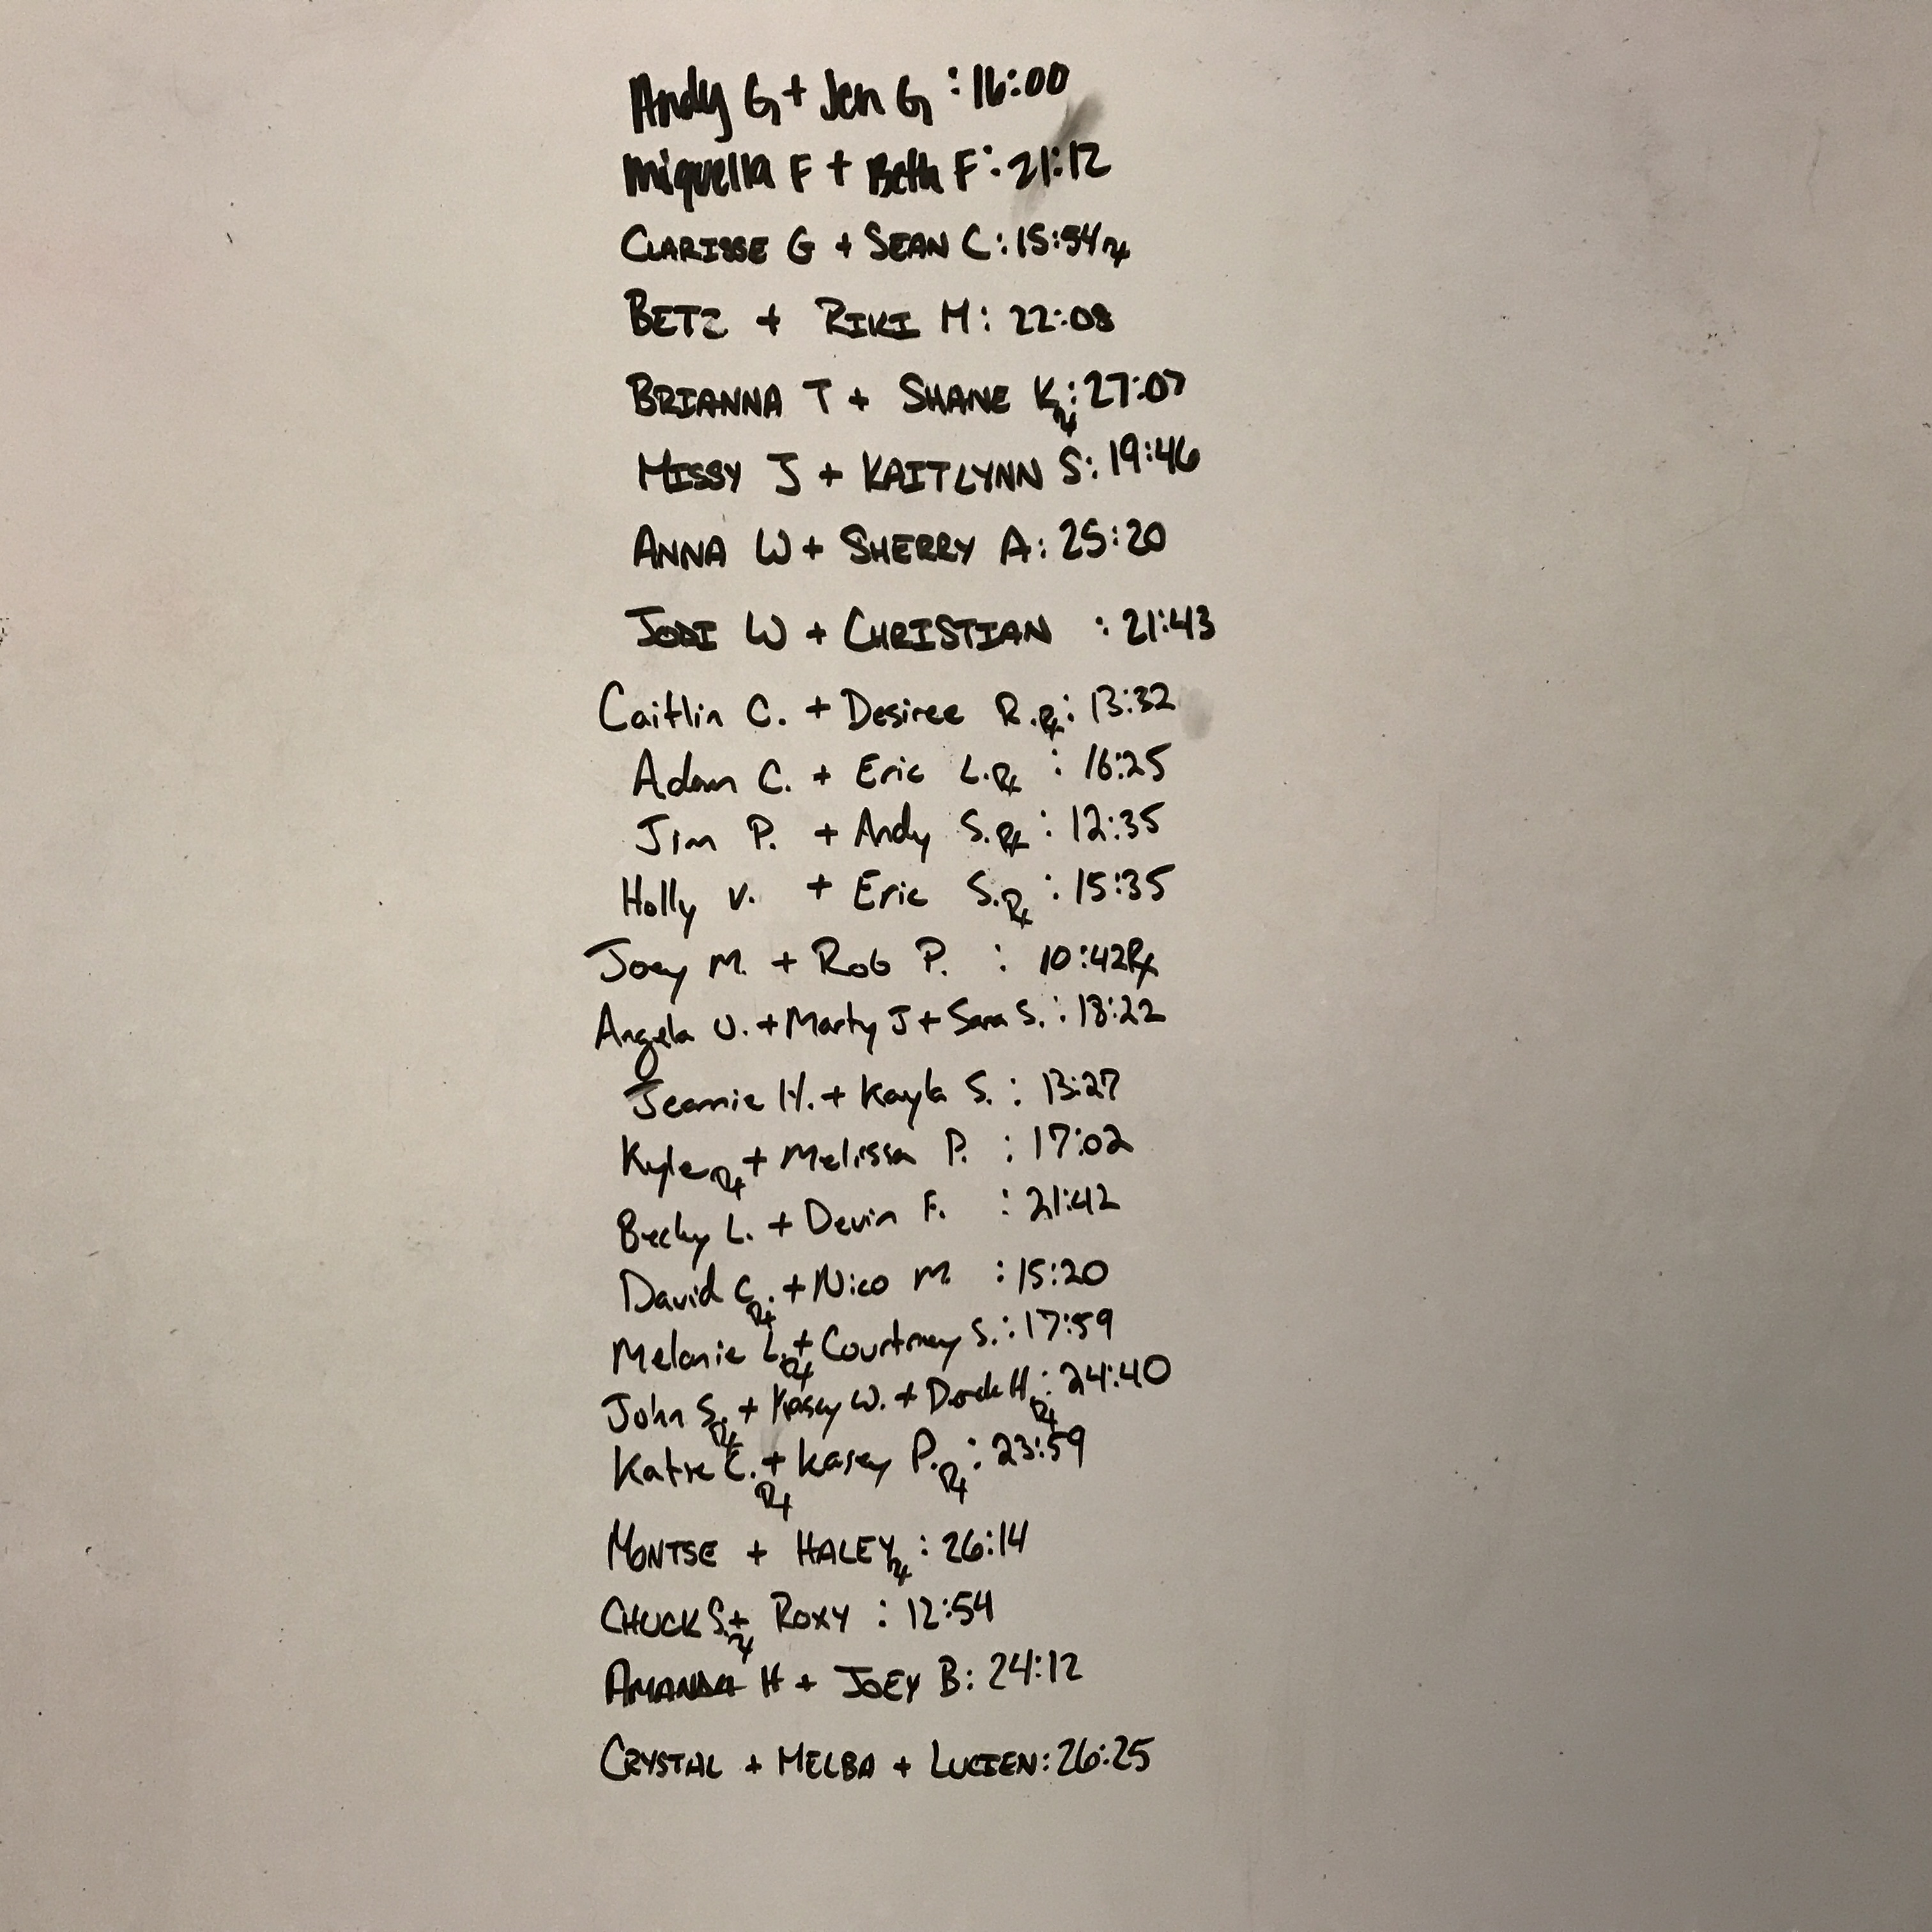 Andy G + Jen G : 16:00
Miquella F + Beth F : 21:12
CLARISSE G + SEAN C : 15:54 Rx
BETZ + RIKI M : 22:08
BRIANNA T + SHANE K Rx : 27:07
MISSY J + KAITLYNN S : 19:46
ANNA W + SHERRY A : 25:20
JODI W + CHRISTIAN : 21:43
Caitlin C. + Desiree R. Rx : 13:32
Adam C. + Eric L. Rx : 16:25
Jim P. + Andy S. Rx : 12:35
Holly V. + Eric S. Rx : 15:35
Joey M. + Rob P. : 10:42 Rx
Angela U. + Marty J + Sara S. : 18:22
Jeannie H. + Kayla S. : 13:27
Kyle Rx + Melissa P. : 17:02
Becky L. + Devin F. : 21:42
David C. Rx + Nico M. : 15:20
Melanie L. Rx + Courtney S. : 17:59
John S. Rx + Kasey W. + Derek H. Rx : 24:40
Katie C. Rx + Kasey P. Rx : 23:59
MONTSE + HALEY Rx : 26:14
CHUCK S. Rx + ROXY : 12:54
AMANDA H + JOEY B : 24:12
CRYSTAL + MELBA + LUCIEN : 26:25